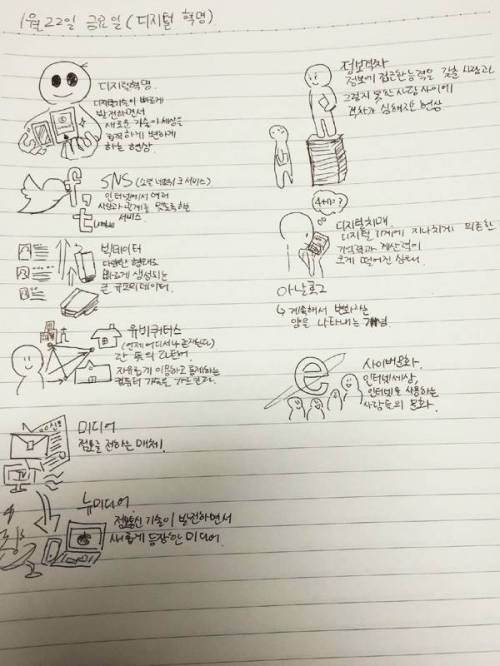 1월 22일 금요일 (디지털 혁명)
디지털혁명.
디지털기술이 빠르게
발전하면서
새로운 기술이 세상을
급격하게 변하게
하는 현상.
SNS (소셜 네트워크 서비스)
인터넷에서 여러
사람과 관계를 맺도록한
서비스
빅데이터
다양한 형태로
빠르게 생성되는
큰 규모의 데이터.
유비쿼터스
(언제 어디서나 존재한다)
간 뜻의 라틴어.
자유롭게 이용하고 통제하는
컴퓨터
미디어
정보를 전하는 매체.
뉴미디어.
정보통신 기술이 발전하면서
새롭게 등장한 미디어.
정보격차
정보에 접근한 능력을 갖춘 사람과
그렇지 못한 사람 사이에
격차가 심해지는 현상
4+11=?
디지털치매
디지털 기계에 지나치게 의존한
기억력과 계산력이
크게 떨어진 상태
아날로그
↳ 계속해서 변화한
양을 나타내는 개념
e
사이버문화.
인터넷세상,
인터넷을 사용하는
사람들의 문화.